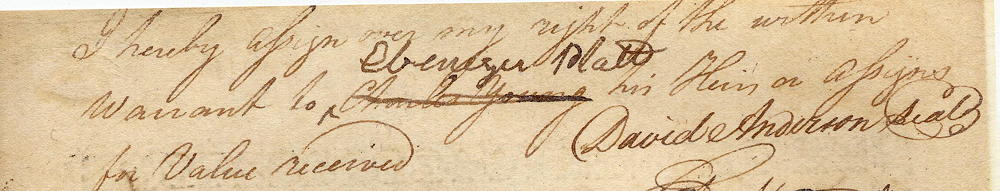 I hereby assign over my right of the within
Ebenezer Platt
warrant to ^ Charles Young his Heirs or Assigns
David Anderson Seal
for Value received